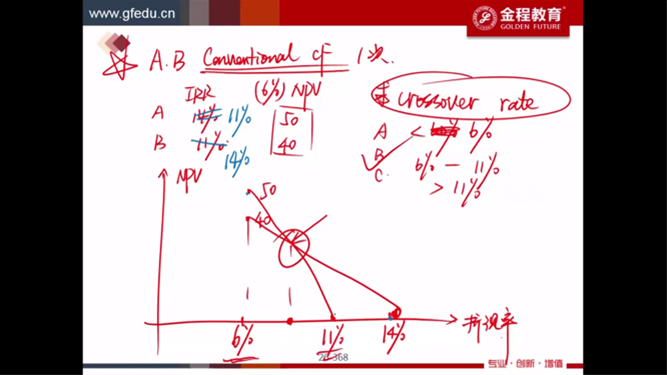 www.gfedu.cn
金程教育
GOLDEN FUTURE
A.B Conventional cf 1次.
IRR (6%) NPV
A 14% 11% 50
B 11% 14% 40
crossover rate
A < 6%
B 6% — 11%
C. > 11%
NPV
50
40
6% 11% 14% 折现率
368
专业·创新·增值